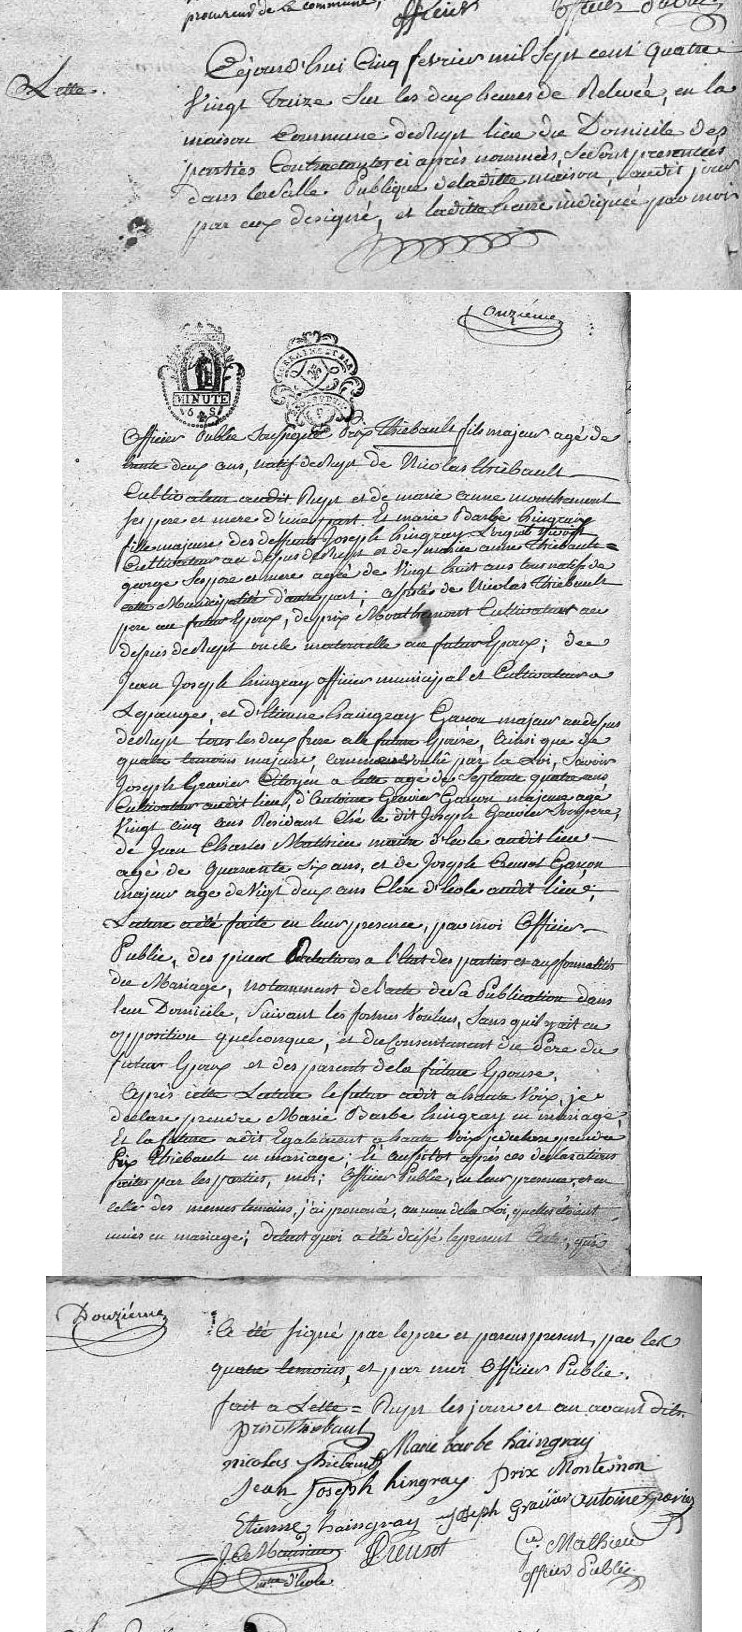 procureur de la commune,
officier
Lette.
Cejourd'hui Cinq fevrier mil Sept cent quatre
Vingt Treize Sur les deux heures de Relevée, en la
maison Commune de Rupt lieu du Domicile des
parties Contractantes ci après nommées, Se Sont presentées
dans la Salle Publique de laditte maison, audit jour
par eux designé, et laditte heure indiquée par moi
onzième
MINUTE
6 S
LORRAINE ET BAR
Officier Public Soussigné Prix Thiebault fils majeur agé de
trente deux ans, natif de Rupt de Nicolas thiebault
Cultivateur audit Rupt et de marie anne monthemont
Ses pere et mere d'une part. Et marie Barbe hingray
fille majeure des deffunts Joseph hingray vivant
Cultivateur au dessus de Rupt et de marie anne Thiebault =
george Ses pere et mere agée de Vingt huit ans tous natifs de
cette Municipalité d'autre part; assistés de Nicolas Thiebault
pere au futur Epoux, de prix Monthemont Cultivateur au
dessus de Rupt oncle maternelle au futur Epoux; de
Jean Joseph hingray officier municipal et Cultivateur a
Lepange, et d'Etienne haingray Garçon majeur au dessus
de Rupt tous les deux frere a la future Epouse, Ainsi que de
quatre temoins majeurs, comme voulu par la Loi, Savoir
Joseph Gravier Citoyen a lette agé de Septante quatre ans
Cultivateur audit lieu, d'Antoine Gravier Garçon majeur agé
Vingt cinq ans Résidant Chez le dit Joseph Gravier Son pere,
de Jean Charles Mathieu maitre d'Ecole audit lieu
agé de quarante Six ans, et de Joseph Creusot Garçon
majeur age de Vigt deux ans Clerc d'Ecole audit lieu;
Lecture a été faite en leur presence, par moi Officier
Public, des pieces Relatives a l'Etat des parties et aux formalités
du Mariage, notamment de l'acte de Sa Publication dans
leur Domicile, Suivant les formes Voulues, Sans qu'il y ait eu
opposition quelconque, et du Consentement du Pere du
futur Epoux et des parents de la future Epouse,
Après cette Lecture le futur a dit a haute Voix, je
declare prendre Marie Barbe hingray en mariage,
Et la future a dit Egalement a haute Voix je declare prendre
Prix Thiebault en mariage; Et aussitot après ces declarations
faites par les parties, moi; Officier Public, en leur presence, et en
celle des memes temoins, j'ai prononcé, au nom de la Loi, quelles étoient
unies en mariage; de tout quoi a été dressé le present Acte, qui
Douzième
a été signé par le pere et parens present, par les
quatre temoins, et par moi Officier Public.
fait a Lette = Rupt les jour et an avant dits.
prix thiebault
nicolas thiebault Marie barbe haingray
Jean Joseph hingray prix Montemon
Etienne haingray Joseph Gravier antoine Gravier
J. C. Mathieu Creusot G. Mathieu
m.tre d'Ecole officier Public